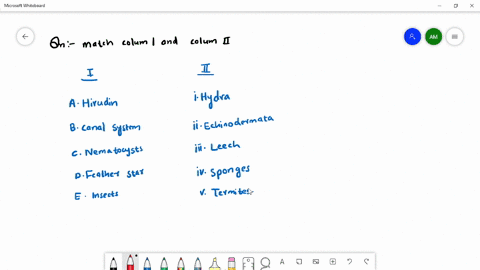 Microsoft Whiteboard
AM
Qn:- match colum I and colum II
I II
A. Hirudin i. Hydra
B. canal system ii. Echinodermata
C. Nematocysts iii. Leech
D. Feather star iv. Sponges
E. Insects v. Termites